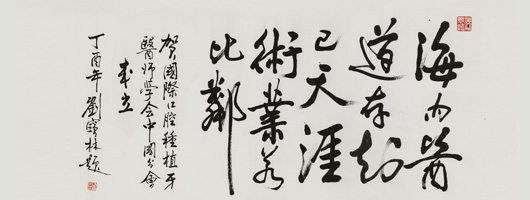 海内醫
道存知
已天涯
術業若
比鄰
賀國際口腔種植牙
醫師學会中國分會
成立
丁酉年劉 林題